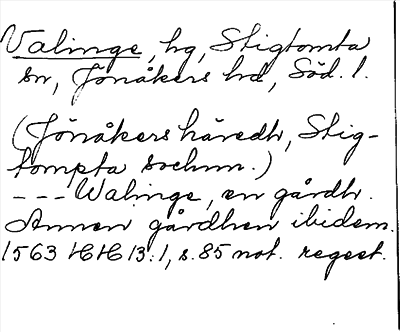 Valinge, hg, Stigtomta
sn, Jönåkers hd, Söd. l.
(Jönåkers häredh, Stig-
tompta sochnn.)
--- Walinge, en gårdh.
Annen gårdhen ibidem.
1563 HH 13:1, s. 85 not. regest.